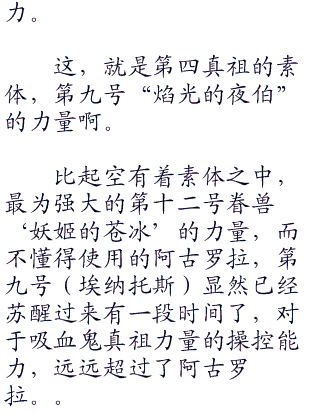 力。
这，就是第四真祖的素
体，第九号“焰光的夜伯”
的力量啊。
比起空有着素体之中，
最为强大的第十二号眷兽
‘妖姬的苍冰’的力量，而
不懂得使用的阿古罗拉，第
九号（埃纳托斯）显然已经
苏醒过来有一段时间了，对
于吸血鬼真祖力量的操控能
力，远远超过了阿古罗
拉。。